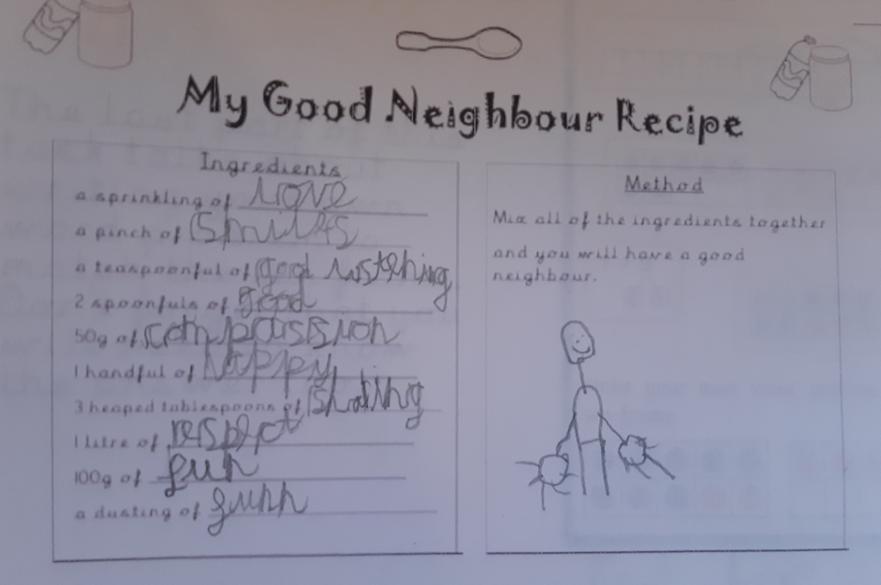 My Good Neighbour Recipe
Ingredients
a sprinkling of love
a pinch of Smiles
a teaspoonful of good listening
2 spoonfuls of good
50g of compassion
1 handful of happy
3 heaped tablespoons of Sharing
1 litre of respect
100g of fun
a dusting of funn
Method
Mix all of the ingredients together
and you will have a good
neighbour.